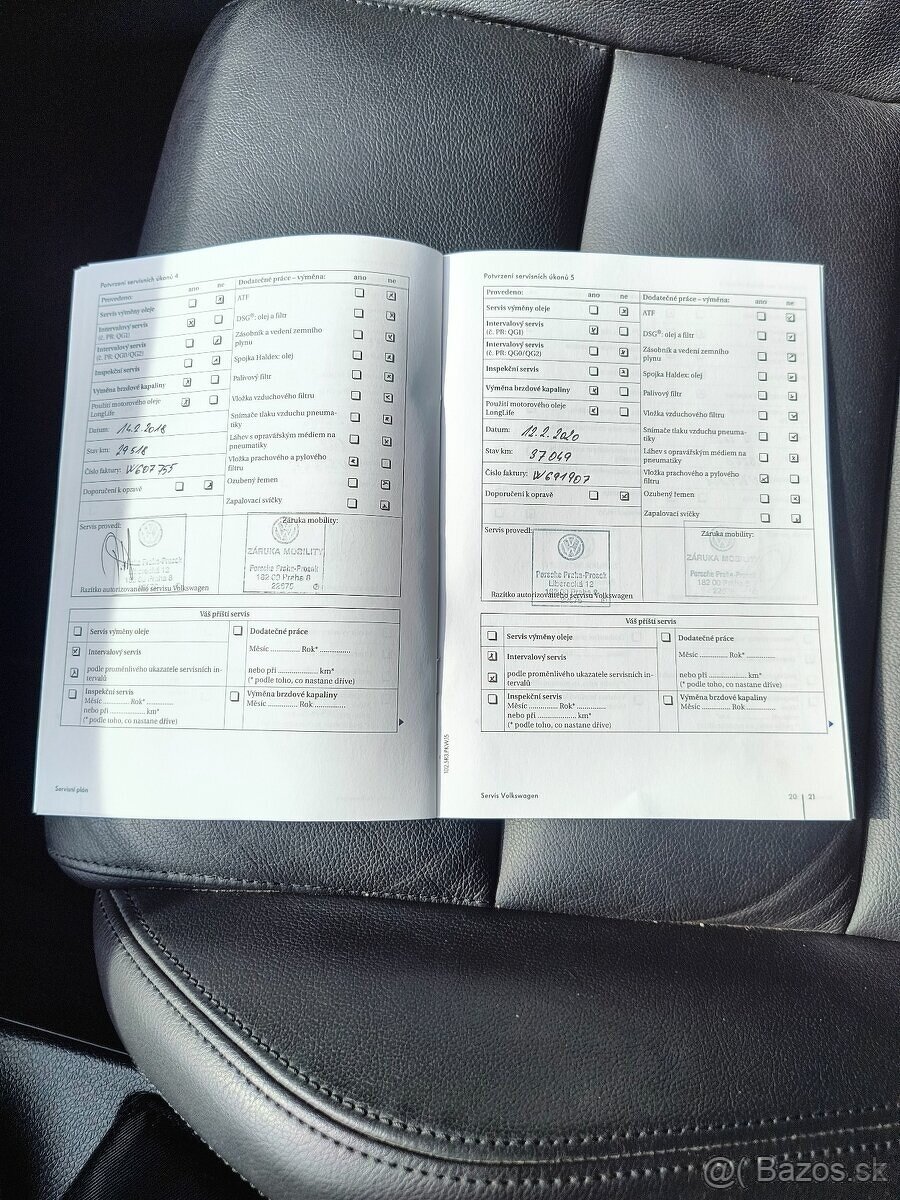 Potvrzení servisních úkonů 4
Provedeno: ano ne
Servis výměny oleje
Intervalový servis
(č. PR: QG1)
Intervalový servis
(č. PR: QG0/QG2)
Inspekční servis
Výměna brzdové kapaliny
Použití motorového oleje
LongLife
Datum: 14.2.2018
Stav km: 29518
Číslo faktury: W607755
Doporučení k opravě
Dodatečné práce – výměna: ano ne
ATF
DSG®: olej a filtr
Zásobník a vedení zemního
plynu
Spojka Haldex: olej
Palivový filtr
Vložka vzduchového filtru
Snímače tlaku vzduchu pneuma-
tiky
Láhev s opravářským médiem na
pneumatiky
Vložka prachového a pylového
filtru
Ozubený řemen
Zapalovací svíčky
Servis provedl:
Praha 8
Razítko autorizovaného servisu Volkswagen
Záruka mobility:
ZÁRUKA MOBILITY
Porsche Praha-Prosek
182 00 Praha 8
22675
Váš příští servis
Servis výměny oleje
Intervalový servis
podle proměnlivého ukazatele servisních in-
tervalů
Inspekční servis
Měsíc ............ Rok* ............
nebo při ............ km*
(* podle toho, co nastane dříve)
Dodatečné práce
Měsíc ............ Rok* ............
nebo při ............ km*
(* podle toho, co nastane dříve)
Výměna brzdové kapaliny
Měsíc ............ Rok ............
Servisní plán
Potvrzení servisních úkonů 5
Provedeno: ano ne
Servis výměny oleje
Intervalový servis
(č. PR: QG1)
Intervalový servis
(č. PR: QG0/QG2)
Inspekční servis
Výměna brzdové kapaliny
Použití motorového oleje
LongLife
Datum: 12.2.2020
Stav km: 37049
Číslo faktury: W691907
Doporučení k opravě
Dodatečné práce – výměna: ano ne
ATF
DSG®: olej a filtr
Zásobník a vedení zemního
plynu
Spojka Haldex: olej
Palivový filtr
Vložka vzduchového filtru
Snímače tlaku vzduchu pneuma-
tiky
Láhev s opravářským médiem na
pneumatiky
Vložka prachového a pylového
filtru
Ozubený řemen
Zapalovací svíčky
Servis provedl:
Porsche Praha-Prosek
Liberecká 12
182 00 Praha 8
Razítko autorizovaného servisu Volkswagen
Záruka mobility:
ZÁRUKA MOBILITY
Porsche Praha-Prosek
182 00 Praha 8
Váš příští servis
Servis výměny oleje
Intervalový servis
podle proměnlivého ukazatele servisních in-
tervalů
Inspekční servis
Měsíc ............ Rok* ............
nebo při ............ km*
(* podle toho, co nastane dříve)
Dodatečné práce
Měsíc ............ Rok* ............
nebo při ............ km*
(* podle toho, co nastane dříve)
Výměna brzdové kapaliny
Měsíc ............ Rok ............
Servis Volkswagen
20 | 21
@( Bazos.sk